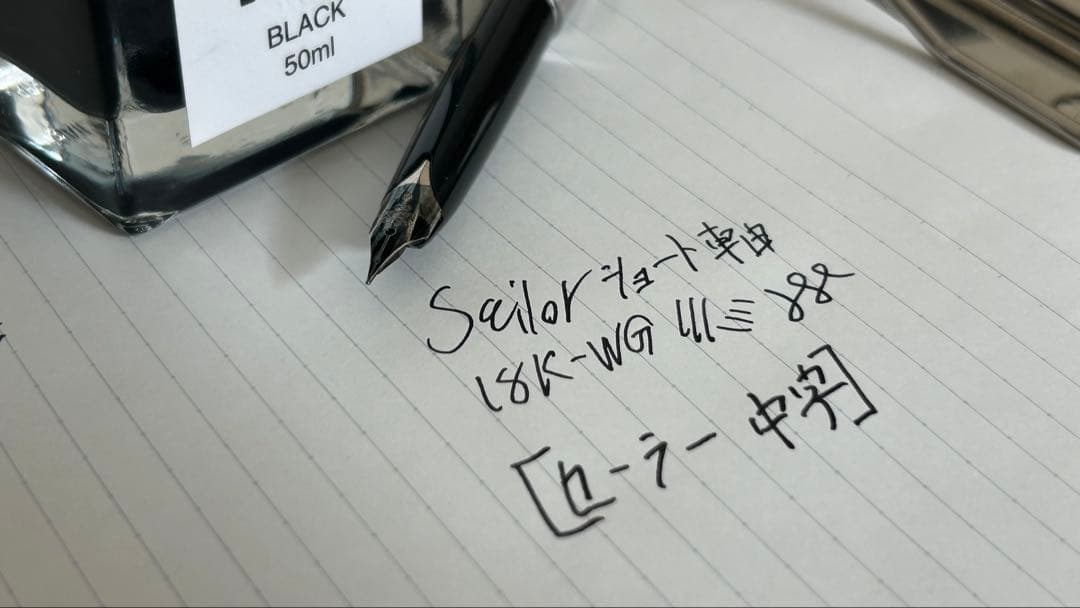 BLACK
50ml
Sailor ショート軸
18K-WG
[セーラー 中字]